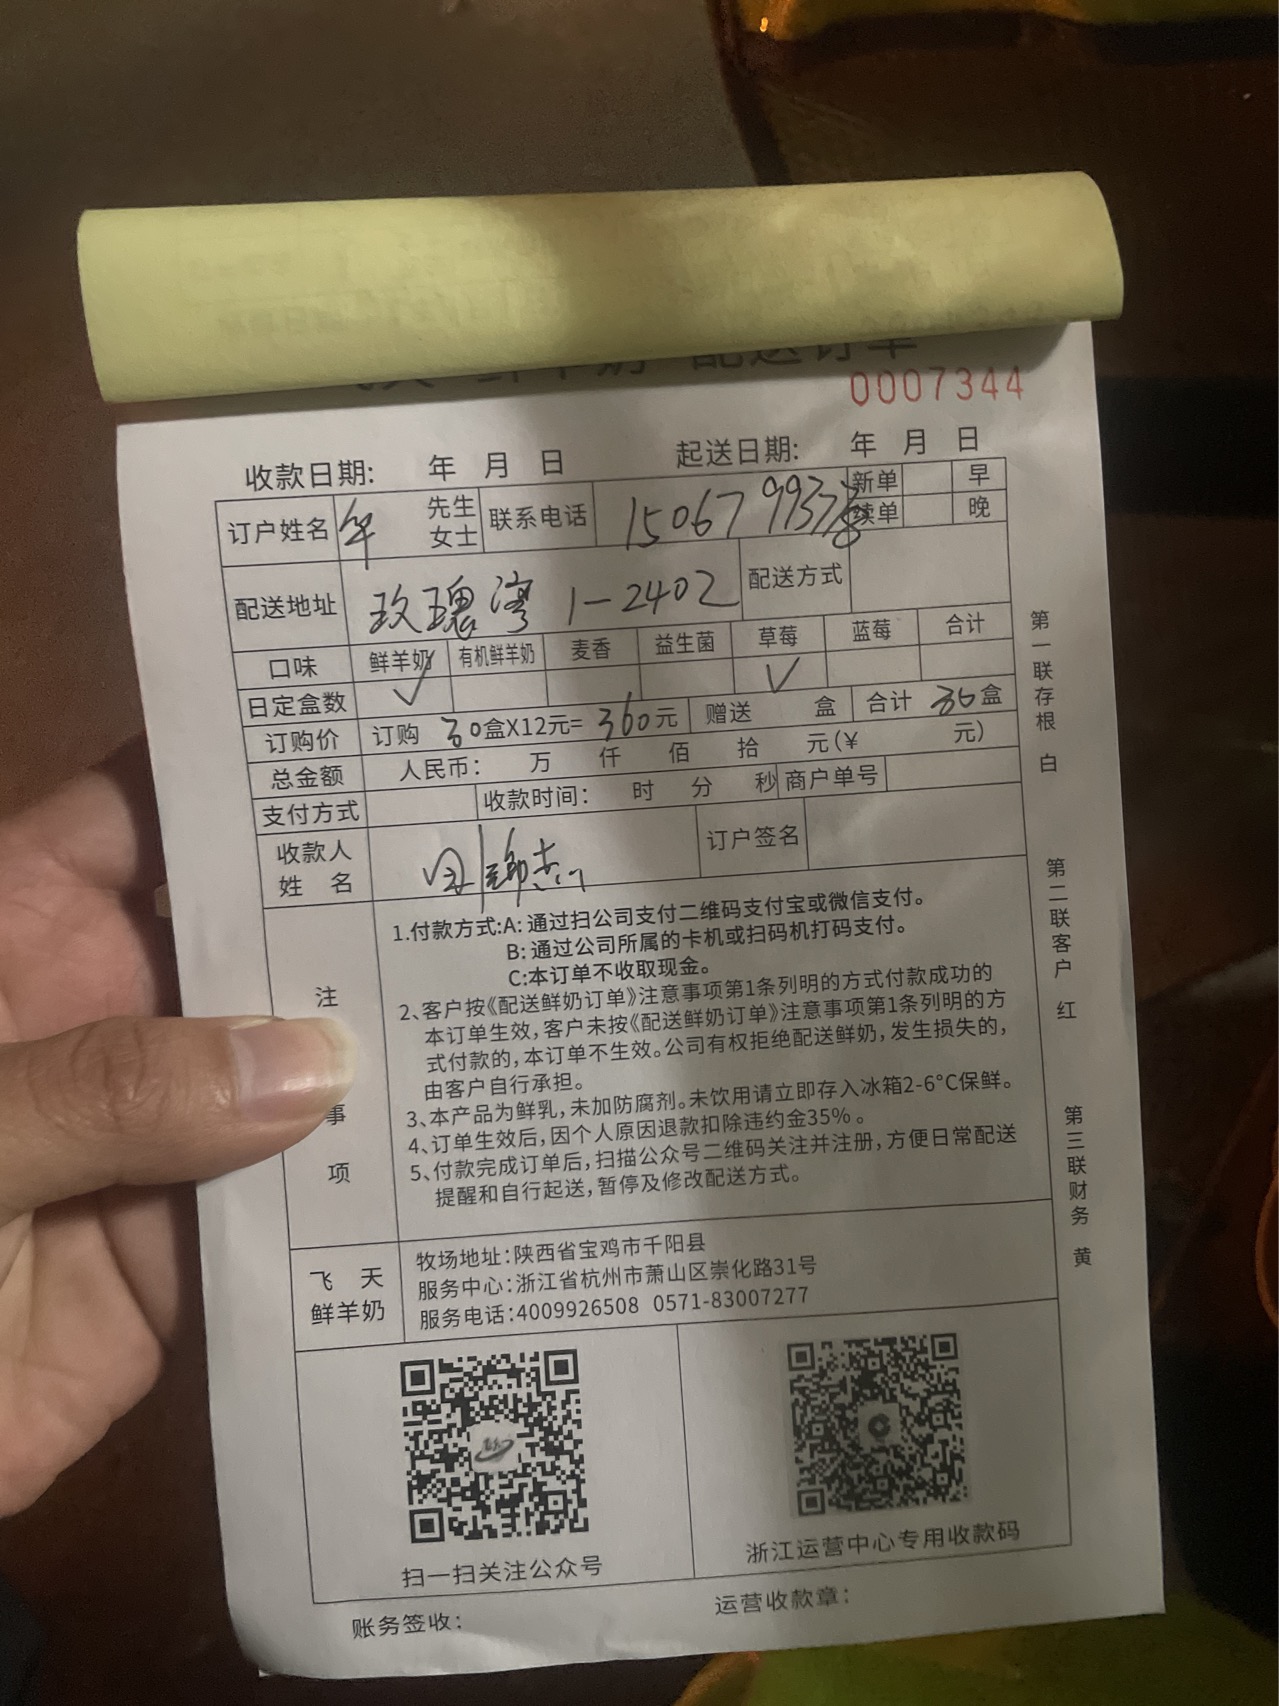 配送订单
0007344
收款日期: 年 月 日 起送日期: 年 月 日
订户姓名 先生 女士 联系电话 新单 早
续单 晚
配送地址 玫瑰湾 1-2402 配送方式
口味 鲜羊奶 有机鲜羊奶 麦香 益生菌 草莓 蓝莓 合计
日定盒数 ✓ ✓
订购价 订购 30盒X12元= 360元 赠送 盒 合计 30盒
总金额 人民币: 万 仟 佰 拾 元(¥ 元)
支付方式 收款时间: 时 分 秒 商户单号
收款人
姓 名 订户签名
注
事
项
1.付款方式:A:通过扫公司支付二维码支付宝或微信支付。
B:通过公司所属的卡机或扫码机打码支付。
C:本订单不收取现金。
2、客户按《配送鲜奶订单》注意事项第1条列明的方式付款成功的
本订单生效,客户未按《配送鲜奶订单》注意事项第1条列明的方
式付款的,本订单不生效。公司有权拒绝配送鲜奶,发生损失的,
由客户自行承担。
3、本产品为鲜乳,未加防腐剂。未饮用请立即存入冰箱2-6°C保鲜。
4、订单生效后,因个人原因退款扣除违约金35%。
5、付款完成订单后,扫描公众号二维码关注并注册,方便日常配送
提醒和自行起送,暂停及修改配送方式。
飞 天
鲜羊奶
牧场地址:陕西省宝鸡市千阳县
服务中心:浙江省杭州市萧山区崇化路31号
服务电话:4009926508 0571-83007277
扫一扫关注公众号
浙江运营中心专用收款码
账务签收:
运营收款章:
第一联存根 白
第二联客户 红
第三联财务 黄